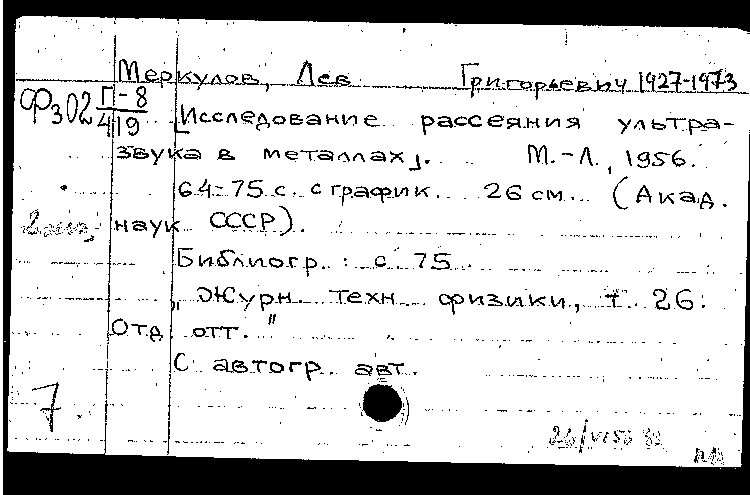 Меркулов, Лев Григорьевич 1927-1973
Фз02 П-8
419
[Исследование рассеяния ультра-
звука в металлах]. М.-Л., 1956.
64-75 с. с график. 26 см. (Акад.
наук СССР).
Библиогр.: с 75
"Журн. техн. физики, т 26.
Отд. отт."
С автогр. авт.
7.